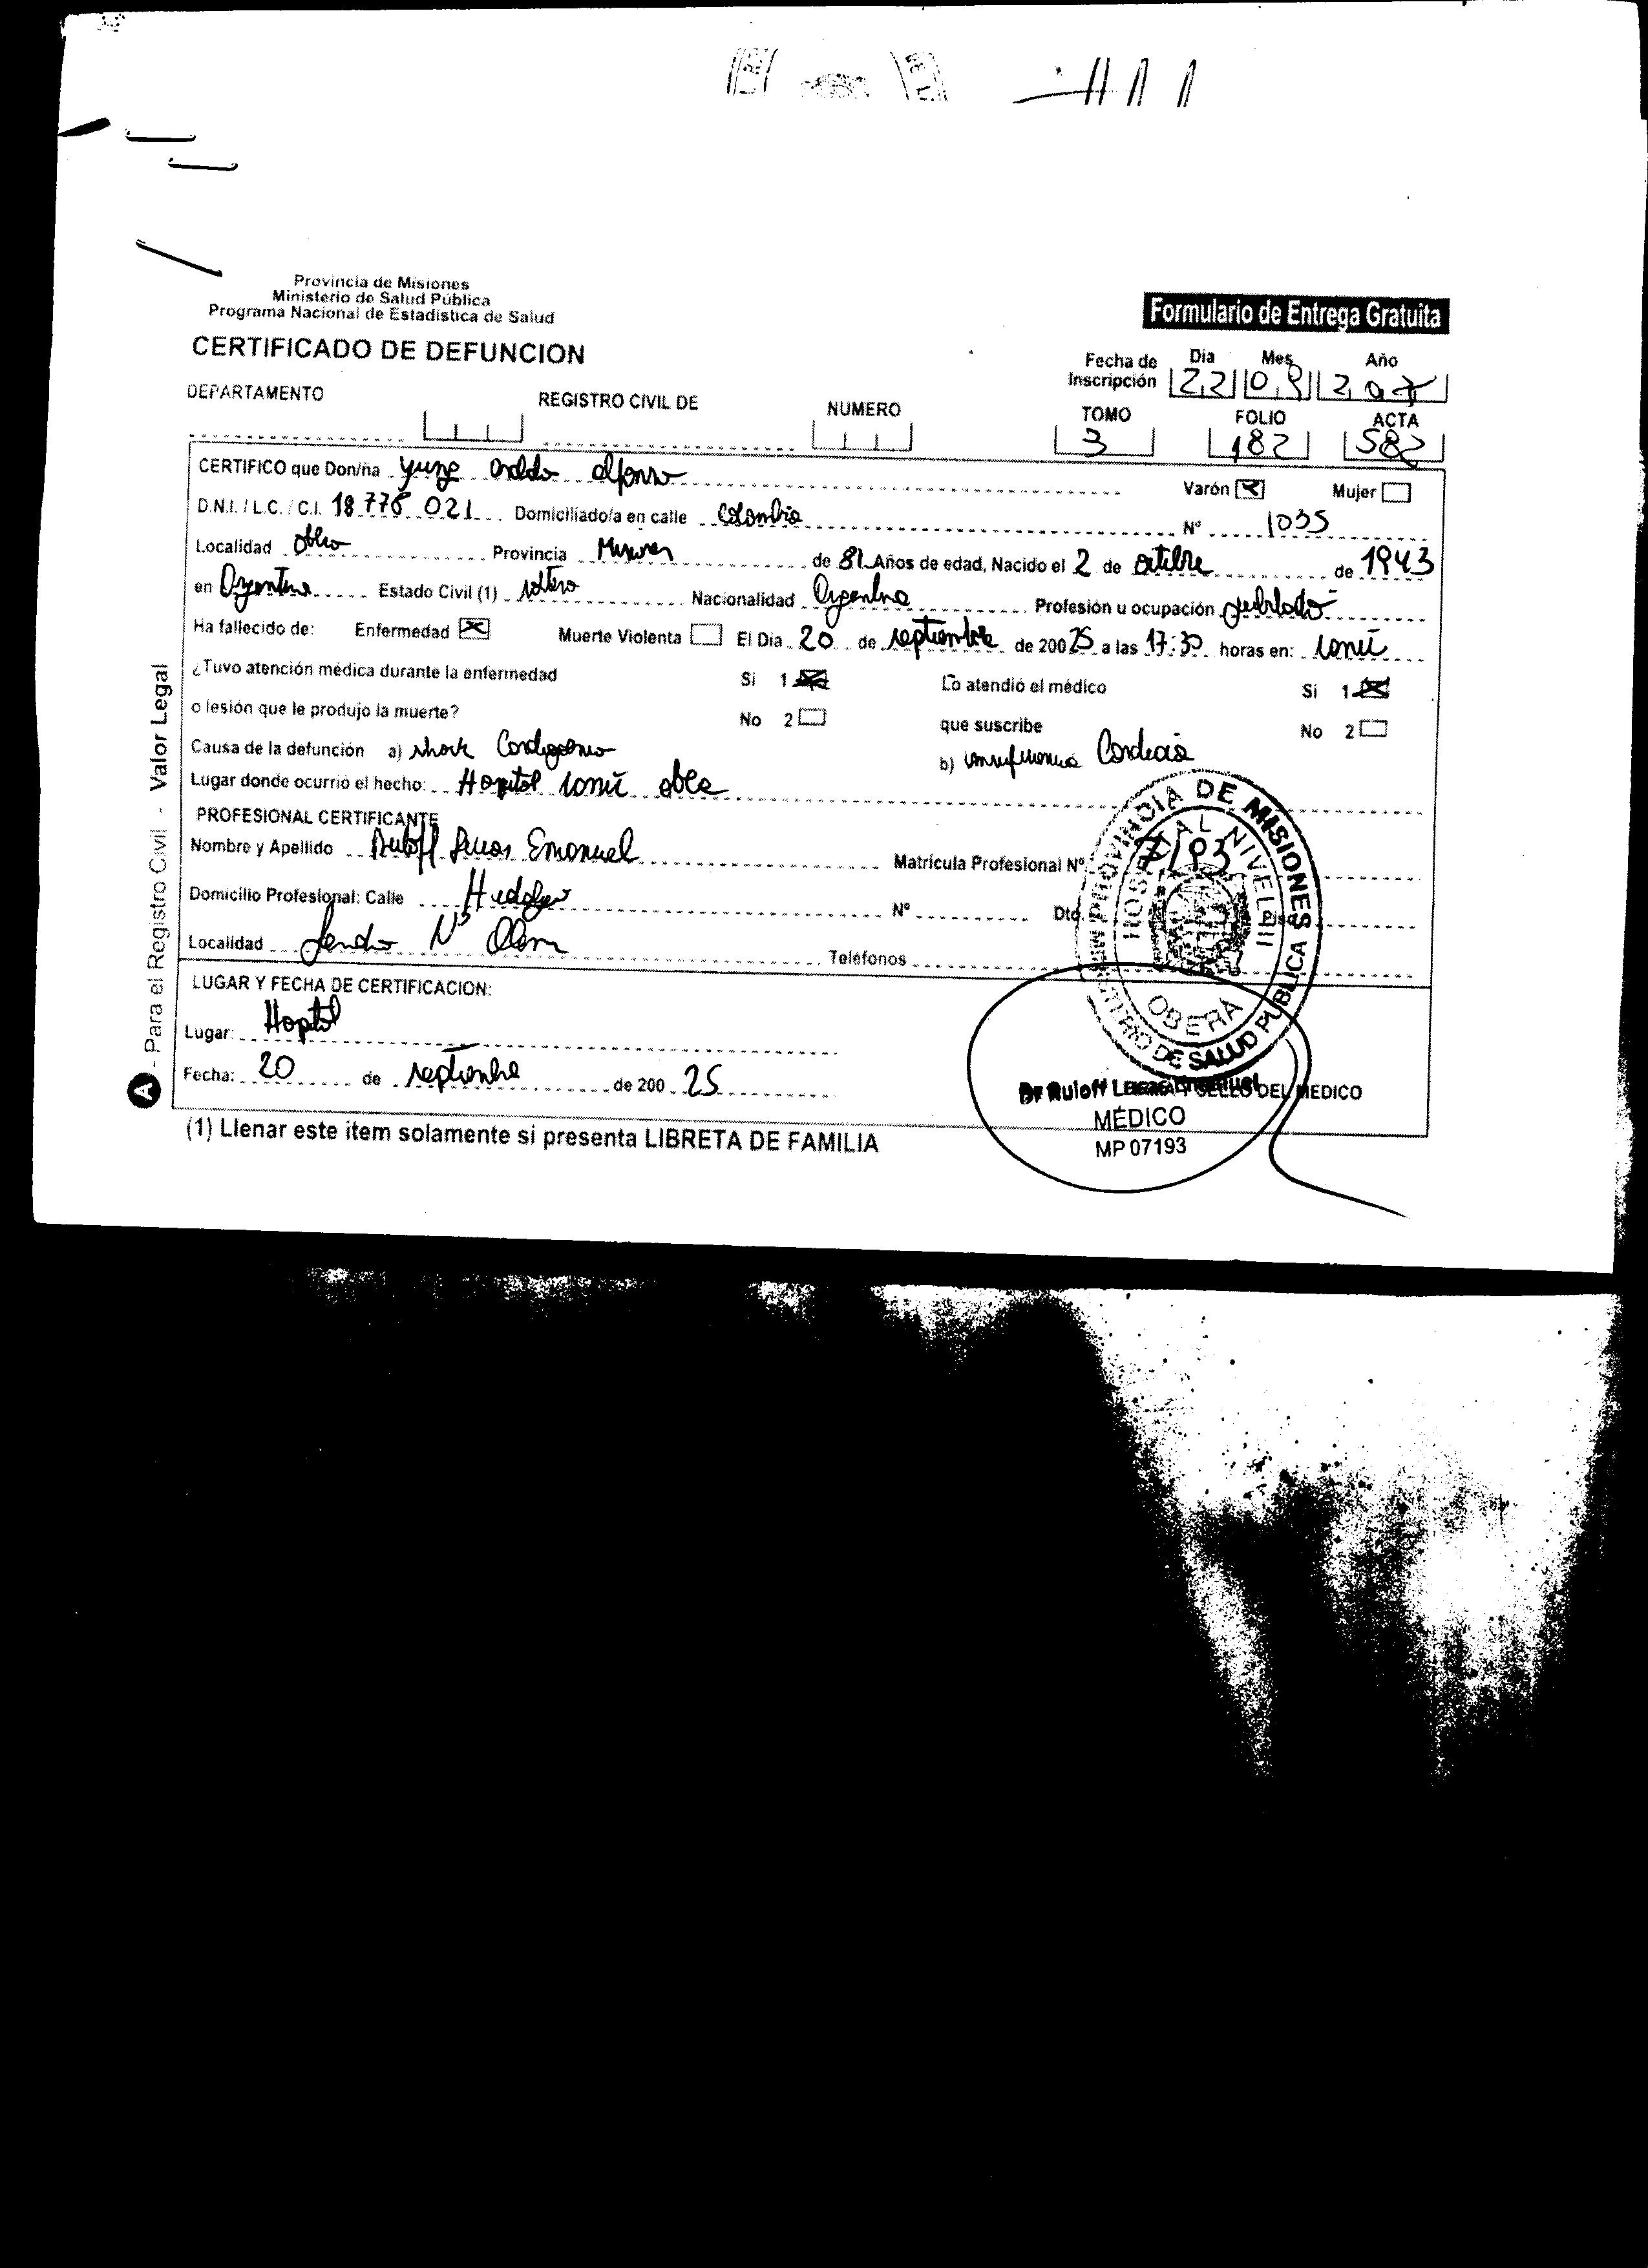 Provincia de Misiones
Ministerio de Salud Pública
Programa Nacional de Estadistica de Salud
Formulario de Entrega Gratuita
CERTIFICADO DE DEFUNCION
Fecha de Inscripción Dia 22 Mes 09 Año
DEPARTAMENTO REGISTRO CIVIL DE NUMERO TOMO 3 FOLIO 182 ACTA 582
CERTIFICO que Don/ña yunge alfonso Varón Mujer
D.N.I. / L.C. / C.I. 18 778 021 Domiciliado/a en calle Colombia Nº 1035
Localidad Provincia Misiones de 81 Años de edad, Nacido el 2 de octubre de 1943
en Argentina Estado Civil (1) soltero Nacionalidad Argentina Profesión u ocupación jubilado
Ha fallecido de: Enfermedad Muerte Violenta El Dia 20 de septiembre de 200 25 a las 17:30 horas en:
¿Tuvo atención médica durante la enfermedad Si 1 Lo atendió el médico Si 1
o lesión que le produjo la muerte? No 2 que suscribe No 2
Causa de la defunción a) shock Cardiogenico b) insuficiencia Cardiaca
Lugar donde ocurrió el hecho: Hospital
PROFESIONAL CERTIFICANTE
Nombre y Apellido Ruloff Lucas Emanuel Matrícula Profesional Nº 7193
Domicilio Profesional: Calle Nº Dto. Piso
Localidad Leandro N Alem Teléfonos
LUGAR Y FECHA DE CERTIFICACION:
Lugar: Hospital
Fecha: 20 de septiembre de 200 25
(1) Llenar este item solamente si presenta LIBRETA DE FAMILIA
A - Para el Registro Civil - Valor Legal
PROVINCIA DE MISIONES
MINISTERIO DE SALUD PUBLICA
HOSPITAL NIVEL III
OBERA
FIRMA Y SELLO DEL MEDICO
Dr Ruloff Lucas Emanuel
MÉDICO
MP 07193